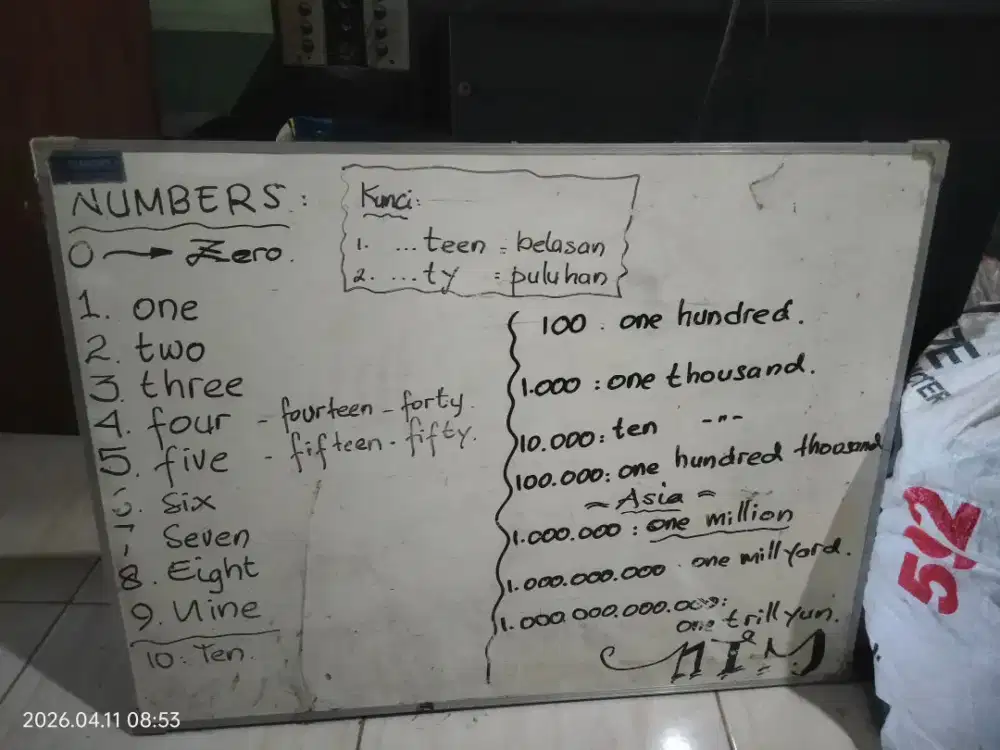 NUMBERS :
0 → Zero.
Kunci:
1. ...teen = belasan
2. ...ty = puluhan
1. one
2. two
3. three
4. four - fourteen - forty.
5. five - fifteen - fifty.
6. Six
7 Seven
8. Eight
9. Nine
10. Ten.
100 : one hundred.
1.000 : one thousand.
10.000 : ten -"-
100.000 : one hundred thousand
~ Asia ~
1.000.000 : one million
1.000.000.000 . one millyard.
1.000.000.000.000 :
one trillyun.
512
2026.04.11 08:53